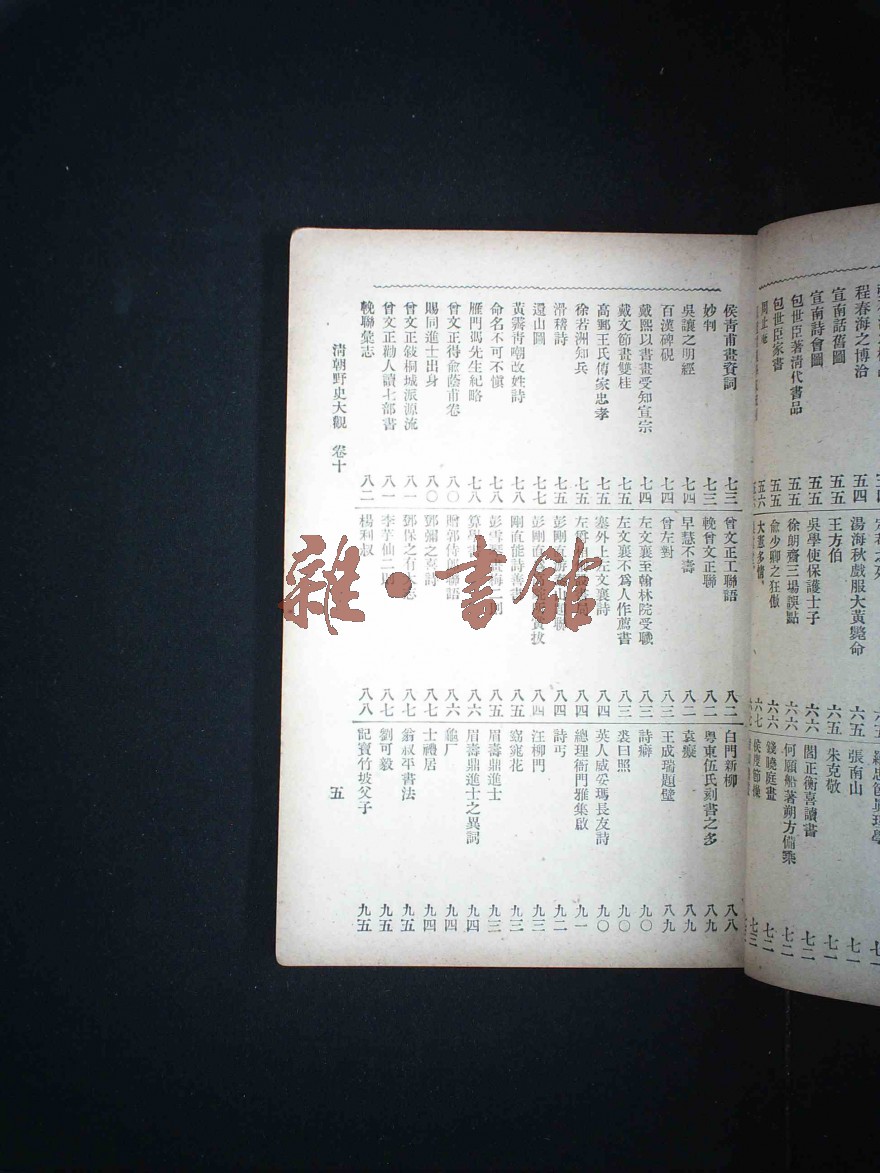 程春海之博洽 五四
宣南話舊圖 五五
宣南詩會圖 五五
包世臣著清代書品 五五
包世臣家書 五五
五六
湯海秋戲服大黃斃命 六五
王方伯 六五
吳學使保護士子 六六
徐朗齋三場誤點 六六
俞少卿之狂傲 六六
大憲多情 六七
張南山 七一
朱克敬 七一
閻正衡喜讀書 七二
何願船著朔方備乘 七二
錢曉庭畫 七二
侯青甫畫資詞 七三
妙判 七三
吳讓之明經 七四
百漢碑硯
戴熙以書畫受知宣宗 七四
戴文節畫雙桂 七五
高郵王氏傳家忠孝 七五
徐若洲知兵 七五
滑稽詩 七五
還山圖 七七
黃霽青嘲改姓詩 七八
命名不可不慎 七八
雁門馮先生紀略 七八
曾文正得俞蔭甫卷 八〇
賜同進士出身 八〇
曾文正敍桐城派源流 八一
曾文正勸人讀七部書 八一
輓聯彙志 八二
曾文正工聯語 八二
輓曾文正聯 八二
早慧不壽 八二
曾左對 八三
左文襄至翰林院受職 八三
左文襄不爲人作薦書 八三
塞外上左文襄詩 八四
八四
彭剛直 八四
彭剛直 八四
剛直能詩善畫 八五
彭雪 八五
算學 八六
贈郭侍郎聯語 八六
鄧彌之 八七
鄧保之有 八七
李芋仙二 八七
楊利叔 八八
白門新柳 八八
粵東伍氏刻書之多 八九
袁癡 八九
王成瑞題壁 八九
詩癖 九〇
裘曰照 九〇
英人威妥瑪長友詩 九〇
總理衙門雅集啟 九一
詩丐 九二
汪柳門 九三
窈窕花 九三
眉壽鼎進士 九三
眉壽鼎進士之異詞 九四
龜厂 九四
士禮居 九四
翁叔平書法 九五
劉可毅 九五
記寶竹坡父子 九五
清朝野史大觀 卷十 五
雜·書館